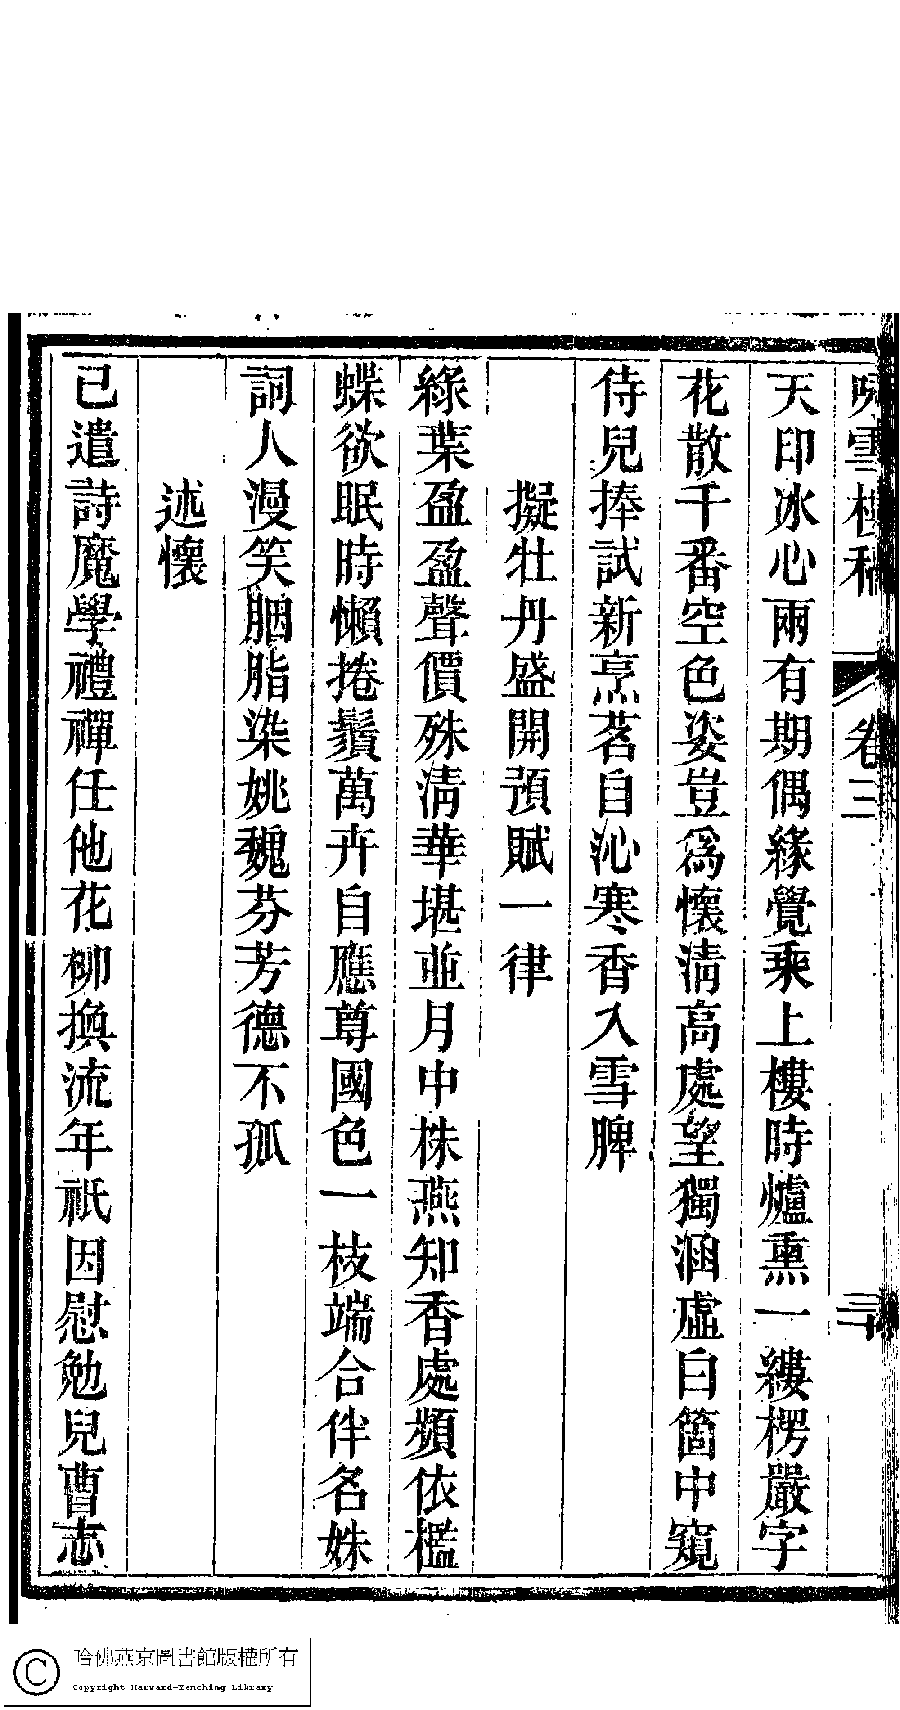 雪樓稿 卷三
天印冰心兩有期偶緣覺乘上樓時爐熏一縷楞嚴字
花散千番空色姿豈爲懷淸高處望獨涵虛白箇中窺
侍兒捧試新烹茗自沁寒香入雪脾
擬牡丹盛開預賦一律
綠葉盈盈聲價殊淸華堪並月中株燕知香處頻依檻
蝶欲眠時懶捲鬚萬卉自應尊國色一枝端合伴名姝
詞人漫笑胭脂染姚魏芬芳德不孤
述懷
已遣詩魔學禮禪任他花柳換流年祇因慰勉兒曹志
哈佛燕京圖書館版權所有
Copyright Harvard-Yenching Library